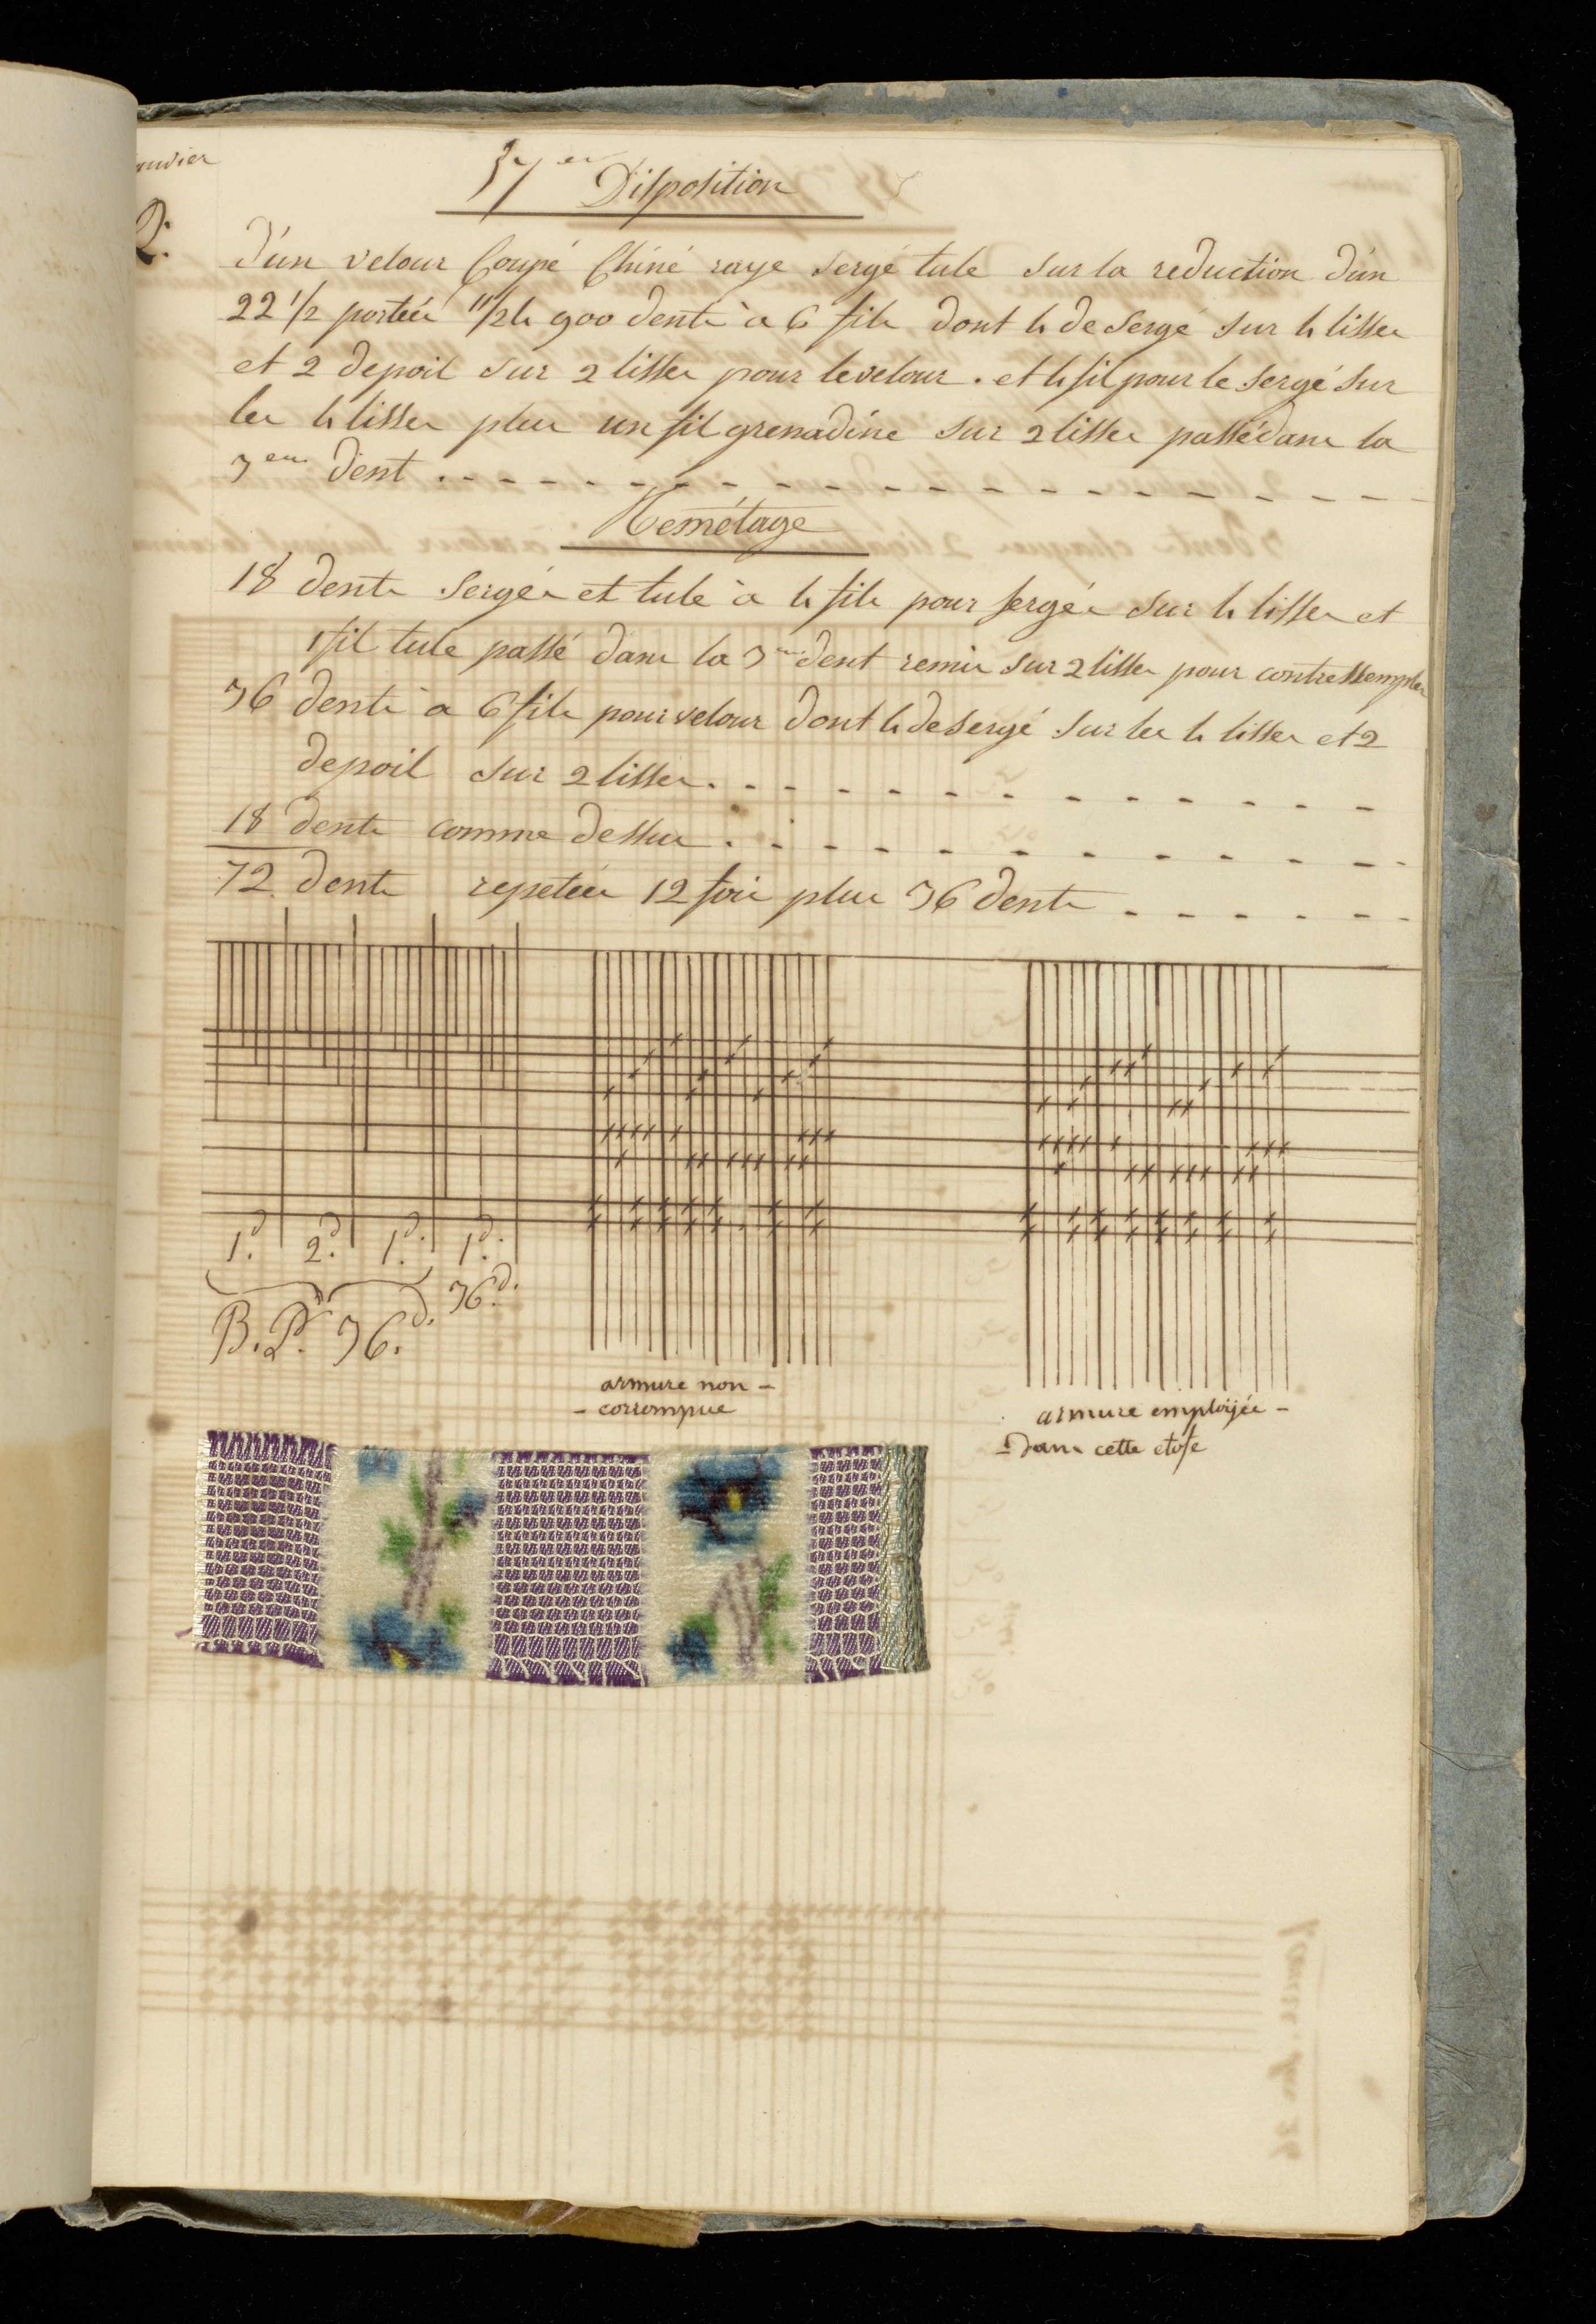 anvier
37em Disposition
2.
D'un velour Coupé Chiné raye sergé tule sur la reduction d'un
22 1/2 portées 11/24 900 dents à 6 fils dont 4 de sergé sur 4 lisses
et 2 de poil sur 2 lisses pour le velour. et 4 fil pour le sergé sur
les 4 lisses plus un fil grenadine sur 2 lisses passé dans la
3em dent
Remétage
18 dents sergés et tule à 4 fils pour sergés sur 4 lisses et
1 fil tule passé dans la 3em dent remis sur 2 lisses pour contressempler
36 dents à 6 fils pour velour dont 4 de sergé sur les 4 lisses et 2
de poil sur 2 lisses.
18 dents comme dessus.
72 dents repetées 12 fois plus 36 dents
1.d 2.d 1.d 1.d
36.d
B.D. 36.d
armure non-
- corrompue
armure employée -
- Dans cette etofe